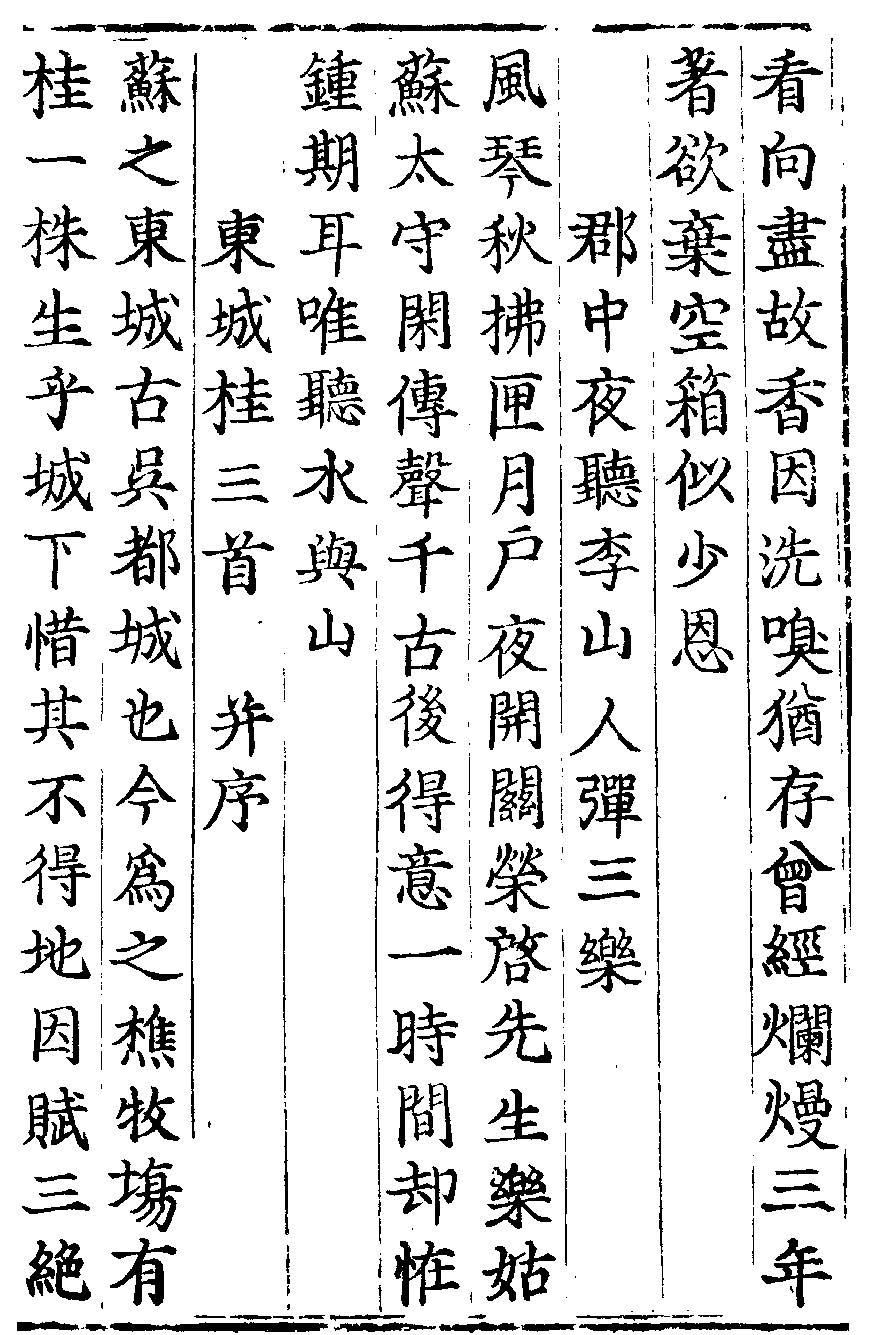 看向盡故香因洗嗅猶存曾經爛熳三年
著欲棄空箱似少恩
郡中夜聽李山人彈三樂
風琴秋拂匣月戶夜開關榮啓先生樂姑
蘇太守閑傳聲千古後得意一時間却恠
鍾期耳唯聽水與山
東城桂三首　并序
蘇之東城古吳都城也今爲之樵牧塲有
桂一株生乎城下惜其不得地因賦三絶